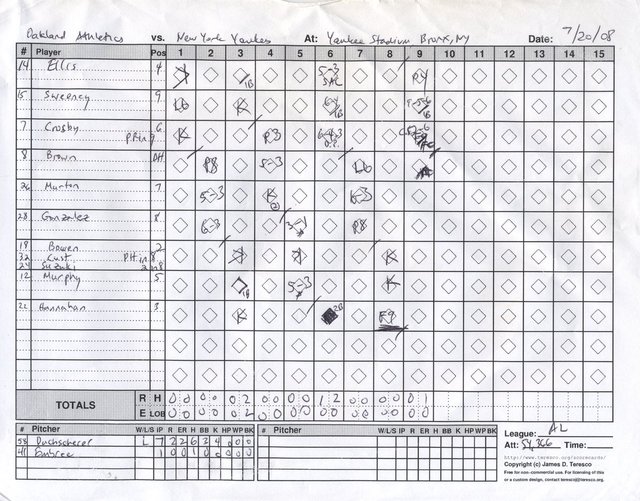 Oakland Athletics vs. New York Yankees At: Yankee Stadium Bronx, NY Date: 7/20/08
# Player Pos 1 2 3 4 5 6 7 8 9 10 11 12 13 14 15
14 Ellis 4 1B 5-3 SAC F4
15 Sweeney 9 L6 K 6-4 1B
7 Crosby 6 K P3 6-4-3
8 Brown DH F8 5-3 L6
26 Murton 7 5-3 K 6-3
28 Gonzalez 8 6-3 3-1 F8
18 Bowen 2 K
32 Cust PH in 8
24 Suzuki 2 in 8
12 Murphy 5 1B 5-3 K
22 Hannahan 3 K 2B F9
TOTALS R H 0 0 0 0 0 2 0 0 0 0 1 2 0 0 0 0 0 1
E LOB 0 0 0 0 0 2 0 0 0 0
# Pitcher W/L/S IP R ER H BB K HP WP BK # Pitcher W/L/S IP R ER H BB K HP WP BK
58 Duchscherer L 7 2 2 6 2 4 0 0 0
41 Embree 1 0 0 1 0 0 0 0 0
League: AL
Att: 54,366 Time:
http://www.teresco.org/scorecards/
Copyright (c) James D. Teresco
Free for non-commercial use. For licensing
or a custom design, contact teresco@teresco.org.